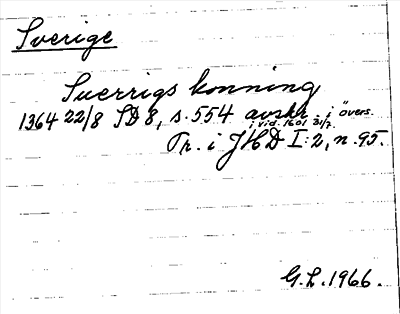 Sverige
Suerrigs konning
1364 22/8 SD 8, s. 554 avskr. i övers.
i vid. 1601 31/7.
Tr. i JHD I:2, n. 95.
G.L. 1966.